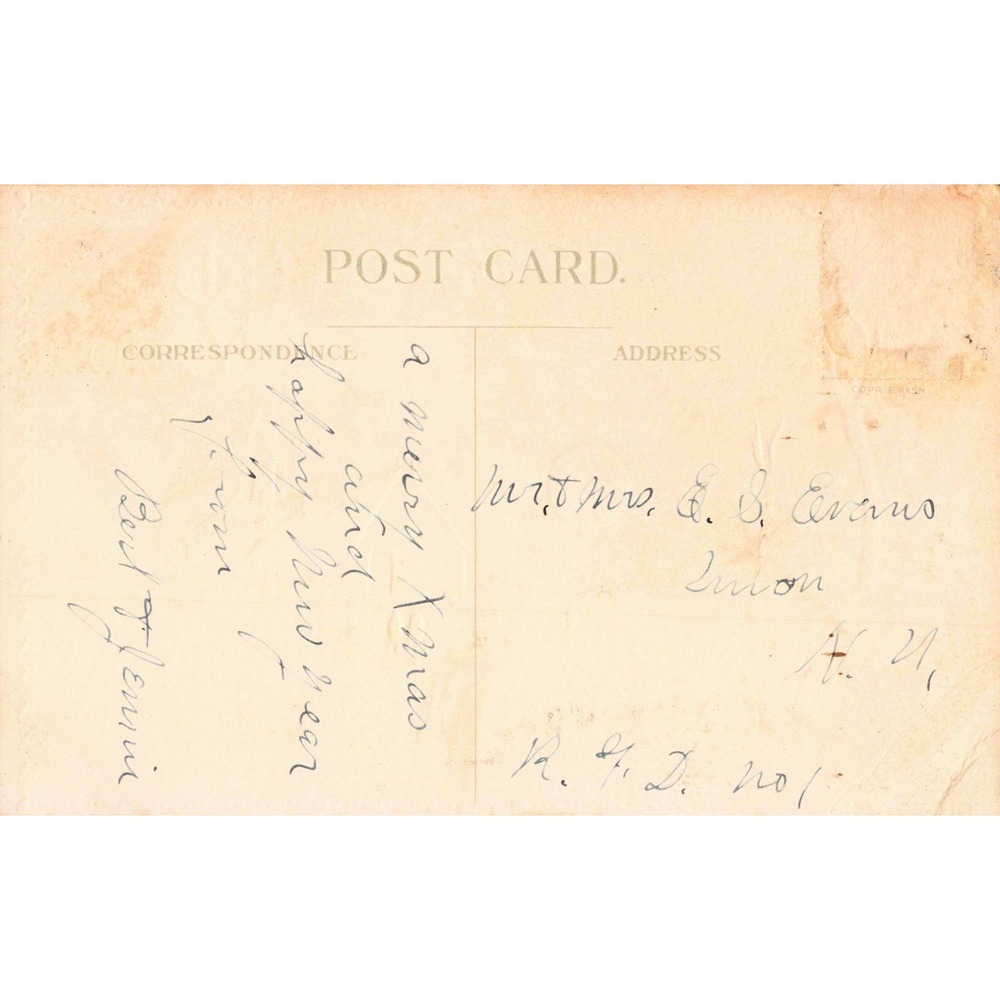 POST CARD.
CORRESPONDENCE
ADDRESS
COPR. E. NASH
a merry Xmas
and
happy New Year
from
Bert & Jennie
Mr. & Mrs. E. S. Evans
Union
N. Y.
R. F. D. no 1